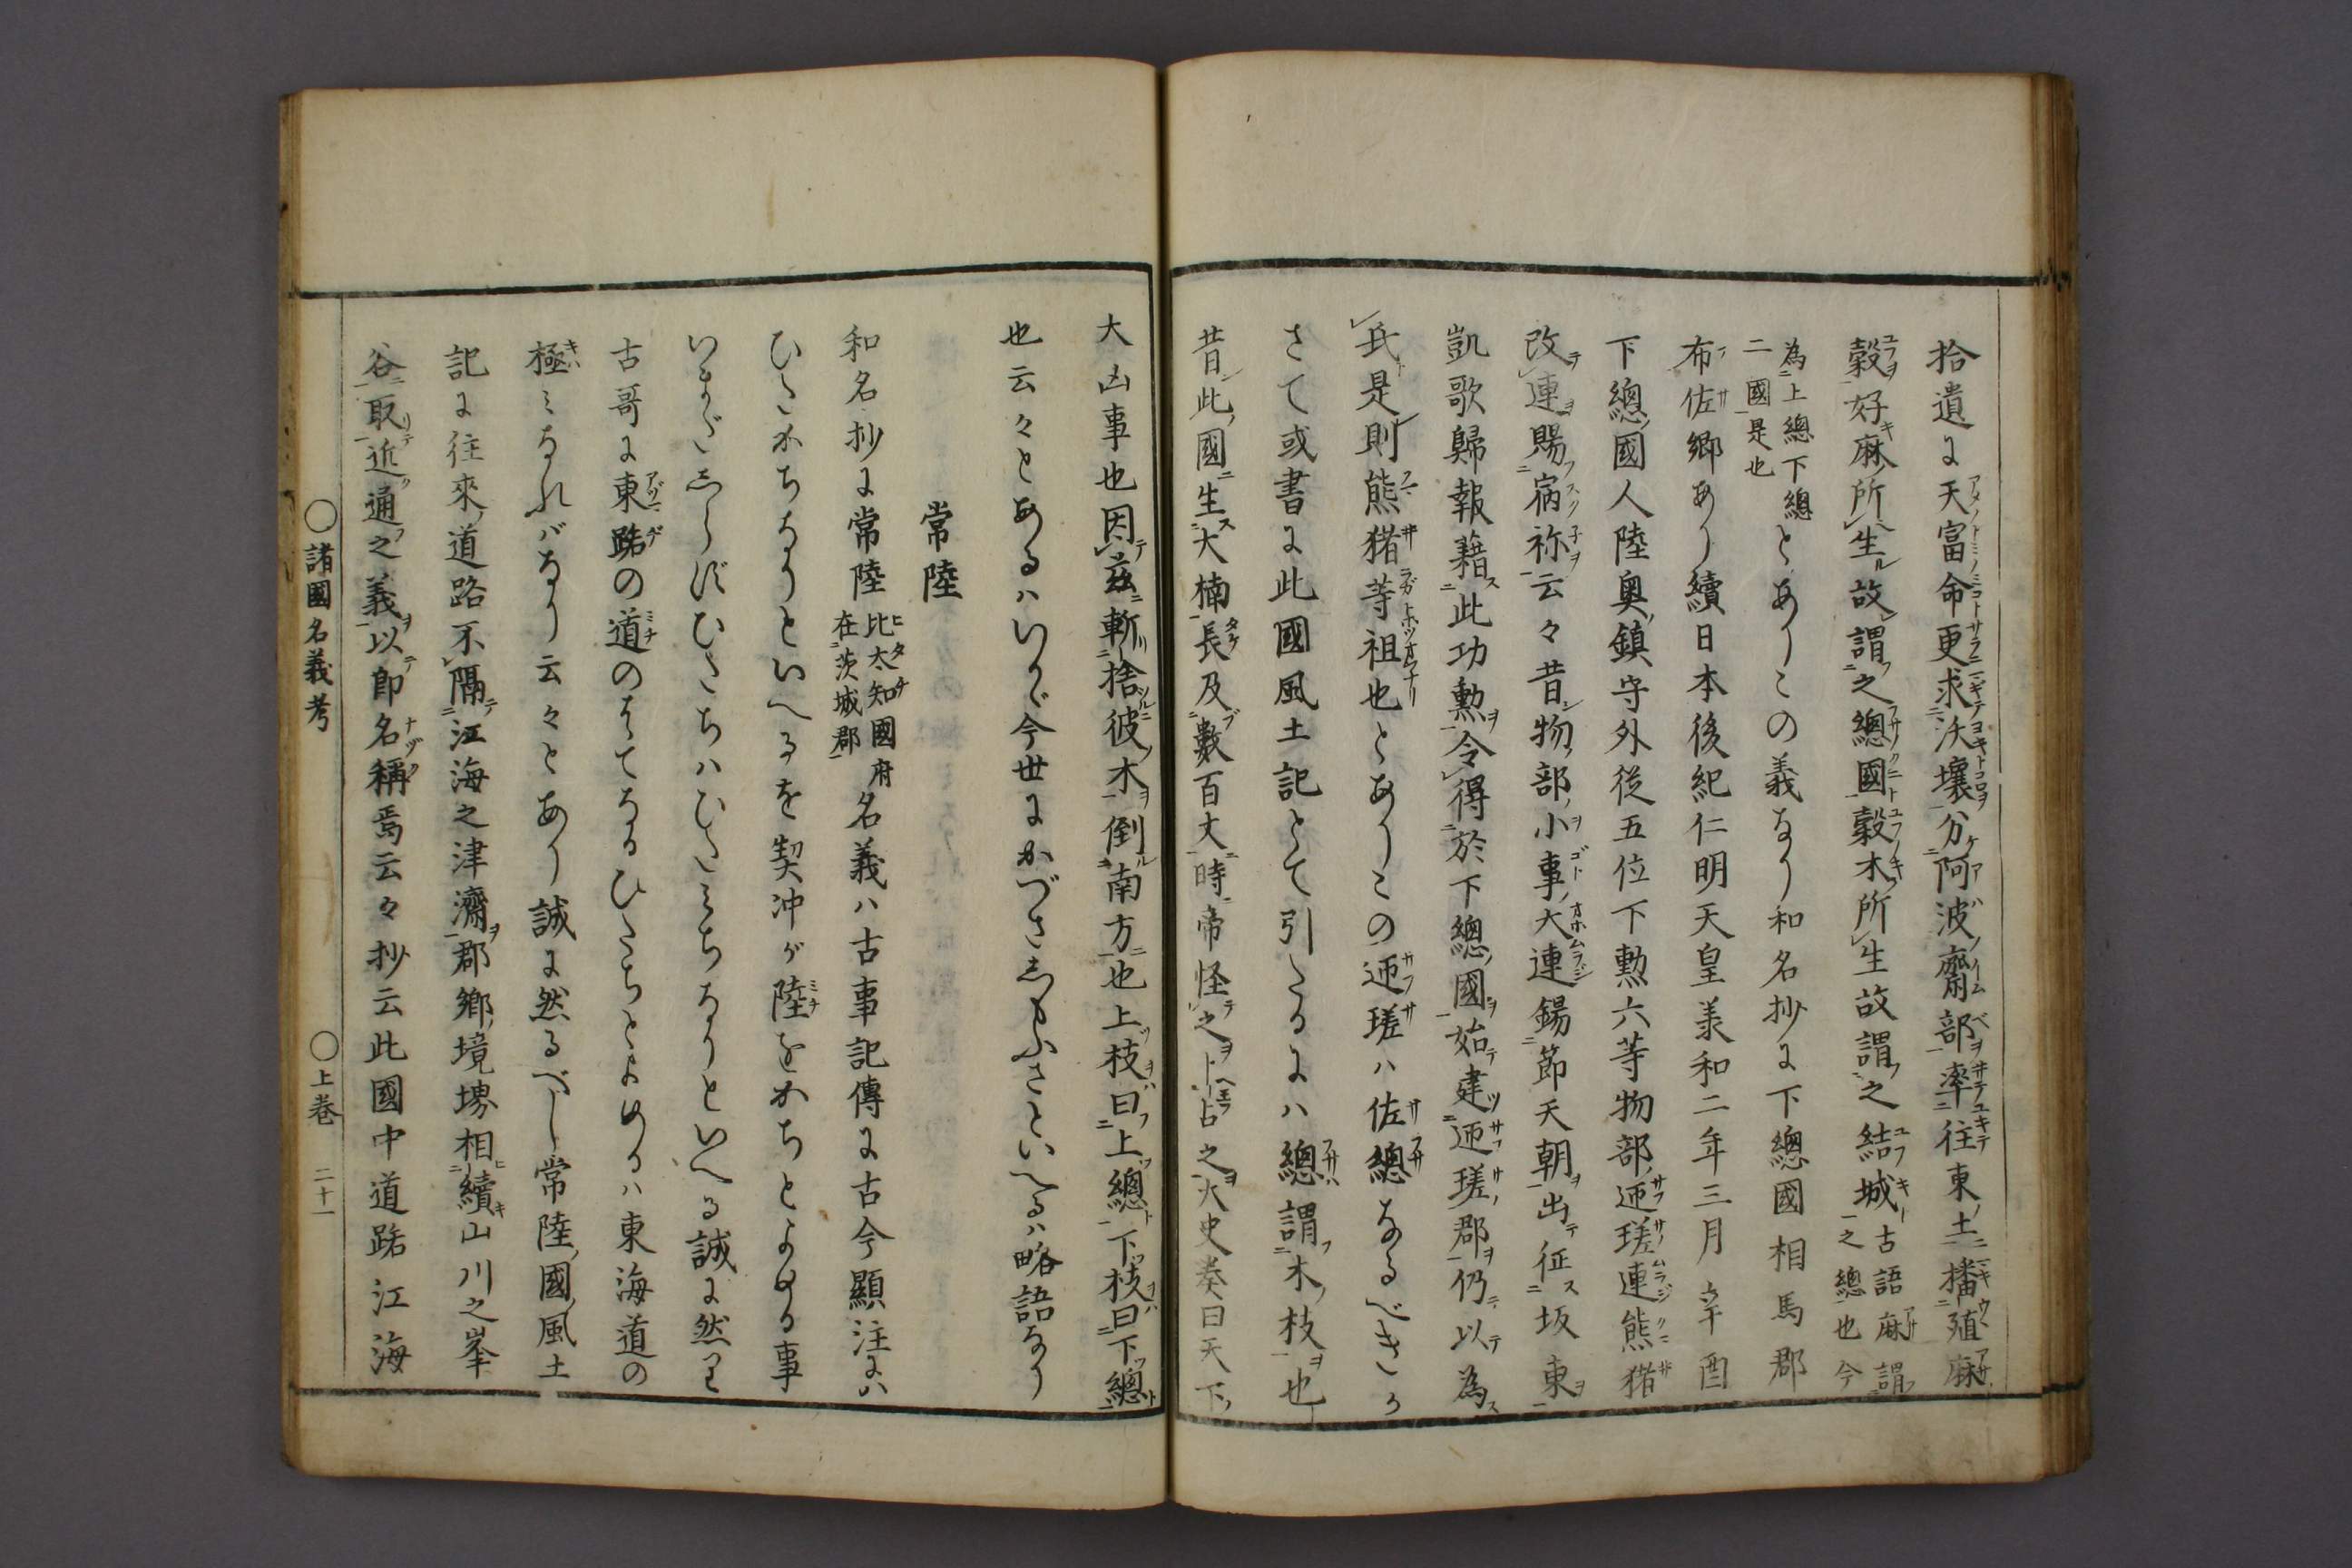 拾遺に天富命更求沃壤分阿波齋部率往東土播殖麻
穀好麻所生故謂之總國穀木所生故謂之結城古語麻謂之總也今
為上總下總二國是也とありこの義なり和名抄に下總國相馬郡
布佐郷あり續日本後紀仁明天皇羕和二年三月辛酉
下總國人陸奥鎮守外從五位下勲六等物部匝瑳連熊猪
改連賜宿祢云々昔物部小事大連錫節天朝出征坂東
凱歌歸報藉此功勲令得於下總國始建匝瑳郡仍以為
氏是則熊猪等祖也とありこの匝瑳ハ佐總なるべきか
さて或書に此國風土記とて引たるにハ總謂木枝也
昔此國生大楠長及數百丈時帝怪之卜占之大史奏曰天下
大凶事也因茲斬捨彼木倒南方也上枝曰上總下枝曰下總
也云々とあるハいかゞ今世にかづさ志もふさといへるハ略語なり
常陸
和名抄に常陸比太知國府在茨城郡名義ハ古事記傳に古今顯注にハ
ひたかちなりといへるを契冲が陸をかちとよめる事
いまだ志らずひたちハひたミちなりといへる誠に然り又
古哥に東路の道のはてなるひたちとよめるハ東海道の
極ミなれバなり云々とあり誠に然るべし常陸國風土
記に往來道路不隔江海之津濟郡郷境堺相續山川之峯
谷取近通之義以即名稱焉云々抄云此國中道路江海
〇諸國名義考　〇上巻　二十一